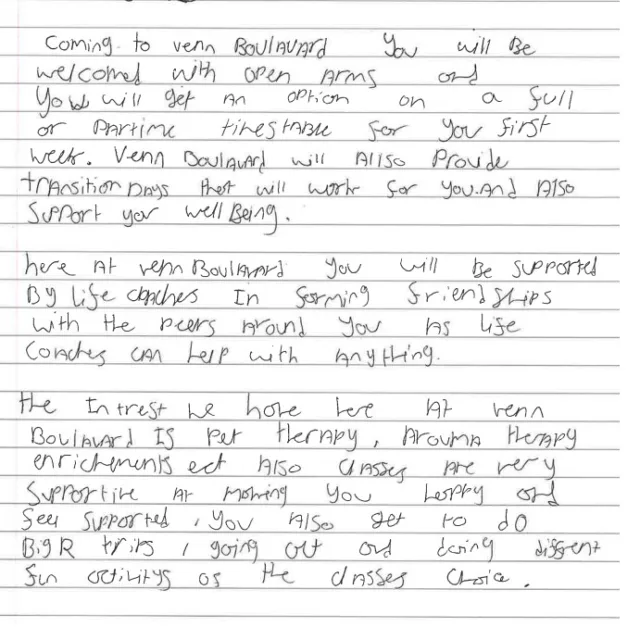 Coming to venn Boulavard You will Be
welcomed with open Arms and
You will get An option on a full
or Partime timestable for you first
week. Venn Boulavard will Allso Provide
transition Days that will work for you. And Also
Support your well Being.
here At venn Boulavard you will be supported
By Life choaches In forming friendships
with the peers Around you As life
Coaches can help with Anything.
the Intrest we have here At venn
Boulavard Is Pet therapy, Arouma therapy
enrichements ect Also classes Are very
Supportive At Making you happy and
feel Supported, you Also get to do
Big R trips, going out and doing different
fun activitys as the classes Choice.